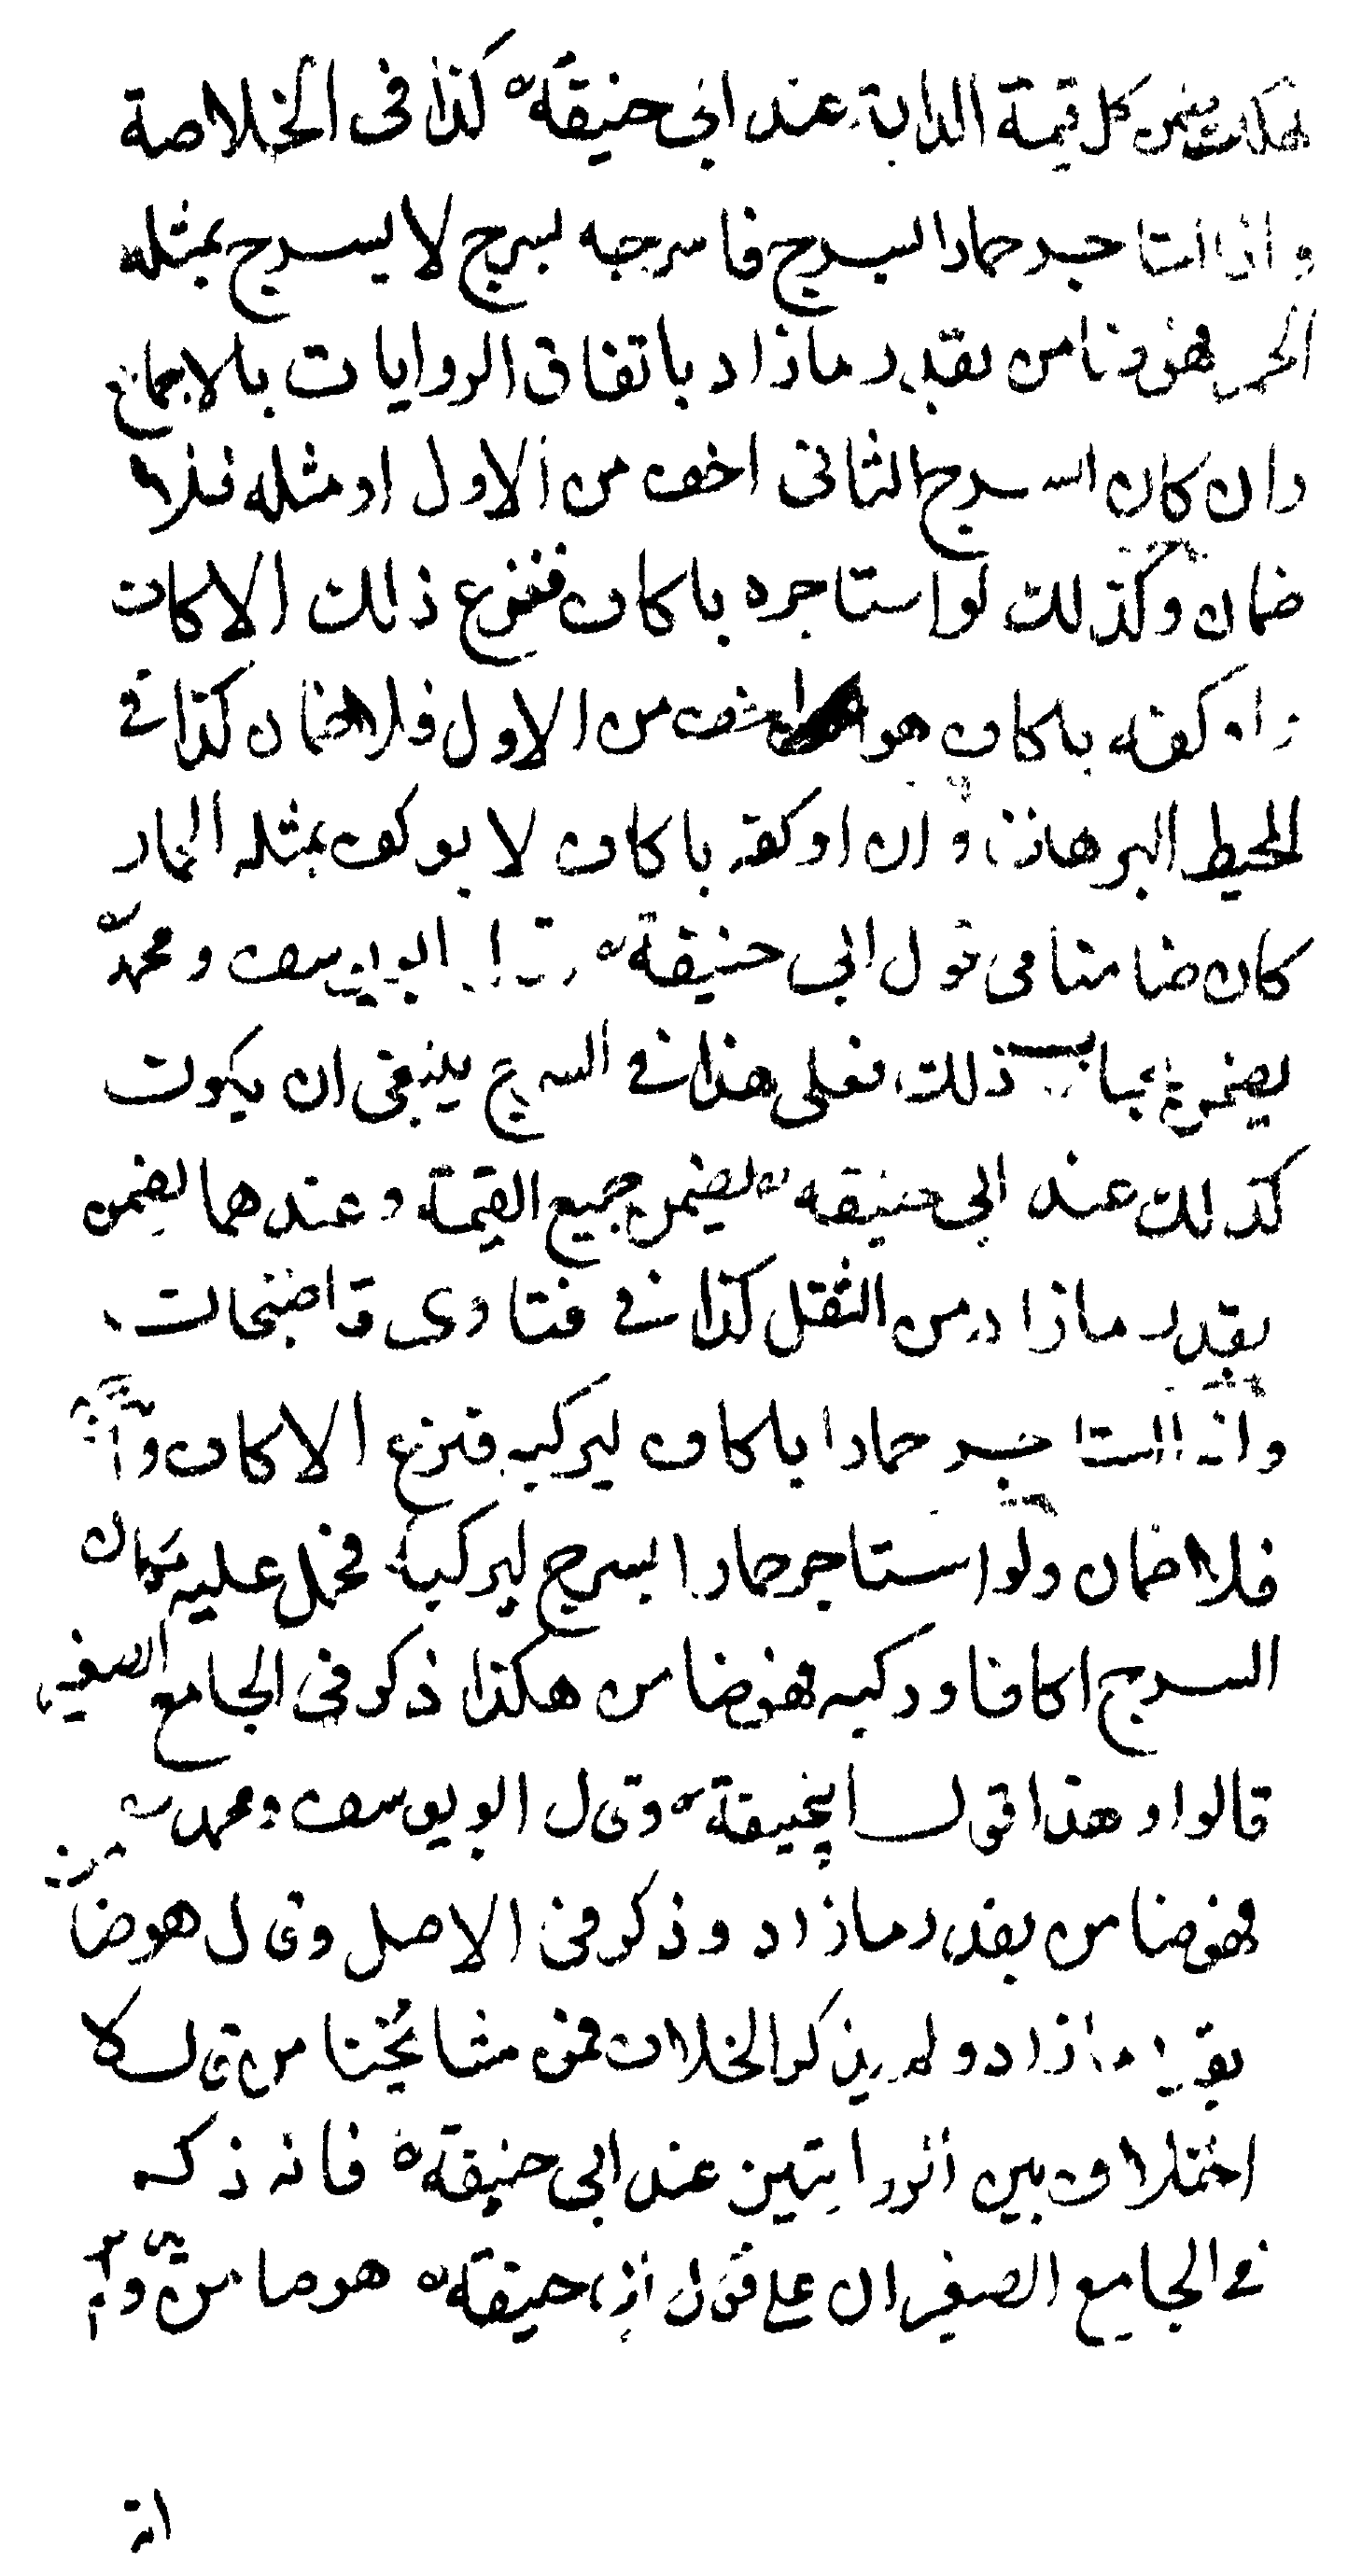 فهلكت يضمن كل قيمة الدابة عند ابي حنيفة كذا فى الخلاصة
واذا استاجر حمارا ليسرج فاسرجه بسرج لا يسرج بمثله
الحمر فهو ضامن بقدر ما زاد باتفاق الروايات بالاجماع
وان كان السرج الثانى اخف من الاول او مثله فلا
ضمان وكذلك لو استاجره باكاف فنزع ذلك الاكاف
واوكفه باكاف هو اخف من الاول فلا ضمان كذا في
المحيط البرهاني وان اوكفه باكاف لا يوكف بمثله الحمار
كان ضامنا فى قول ابي حنيفة وقال ابو يوسف و محمد
يضمن بحساب ذلك فعلى هذا في السرج ينبغى ان يكون
كذلك عند ابي حنيفه يضمن جميع القيمة و عندهما يضمن
بقدر ما زاد من الثقل كذا في فتاوى قاضيخان
واذا استاجر حمارا باكاف ليركبه فنزع الاكاف و
فلا ضمان ولو استاجر حمارا بسرج ليركبه فحمل عليه مكان
السرج اكافا و ركبه فهو ضامن هكذا ذكر فى الجامع الصغير
قالوا وهذا قول ابيحنيفة وقال ابو يوسف و محمد
فهو ضامن بقدر ما زاد و ذكر في الاصل وقال هو ضامن
بقدر ما زاد ولم يذكر الخلاف فمن مشايخنا من قال لا
اختلاف بين الروايتين عند ابى حنيفة فانه ذكر
في الجامع الصغير ان على قول ابي حنيفة هو ضامن و
انه